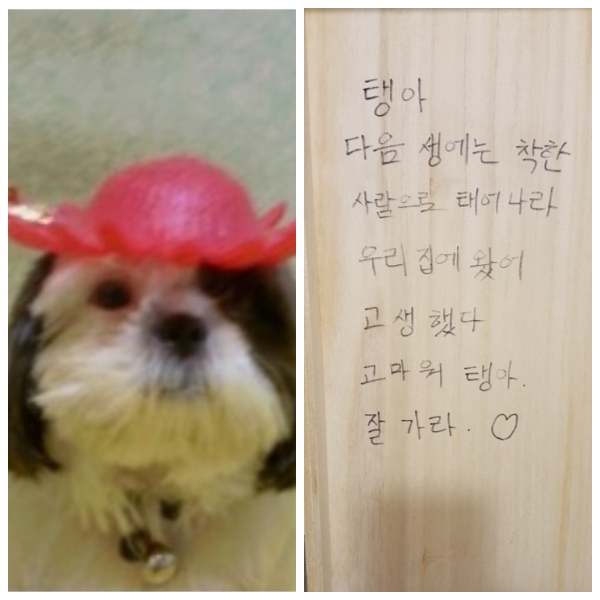 탱아
다음 생에는 착한
사람으로 태어나라
우리집에 왔어
고생했다
고마워 탱아.
잘 가라. ♡